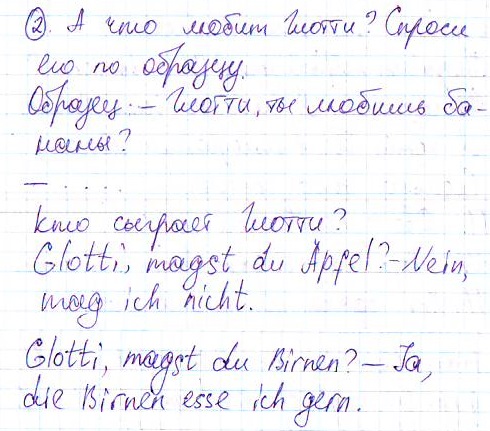 ②. А что любит Глотти? Спроси
его по образцу.
Образец: – Глотти, ты любишь ба-
наны?
– .....
Кто сыграет Глотти?
Glotti, magst du Äpfel? – Nein,
mag ich nicht.
Glotti, magst du Birnen? – Ja,
die Birnen esse ich gern.